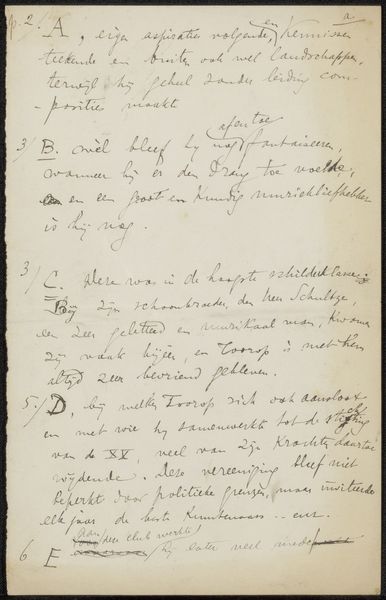 p. 2. a.
A, eigen aspiraties volgende, en kennissen
teekende en buiten ook wel landschappen,
terwijl hij geheel zonder leiding com-
-posities maakt
3/ B. wèl bleef hij nog af en toe fantaiseeren,
wanneer hij er den drang toe voelde,
en een groot en kundig muziekliefhebber
is hij nog.
3/ C. Deze was in de hoogste schilderklasse.
Bij zijn schoonbroeder, den heer Schultze,
een zeer geletterd en muzikaal man, kwamen
zij vaak bijeen, en Toorop is met hem
altijd zeer bevriend gebleven.
5./ D, bij welken Toorop zich ook aansloot
en met wie hij samenwerkte tot de stichting
van de XX, veel van zijn krachten daartoe
wijdende. Deze vereeniging bleef niet
beperkt door politieke grenzen, maar inviteerde
elk jaar de beste kunstenaars .. enz.
6 E Aan deze club werkte hij later veel mede